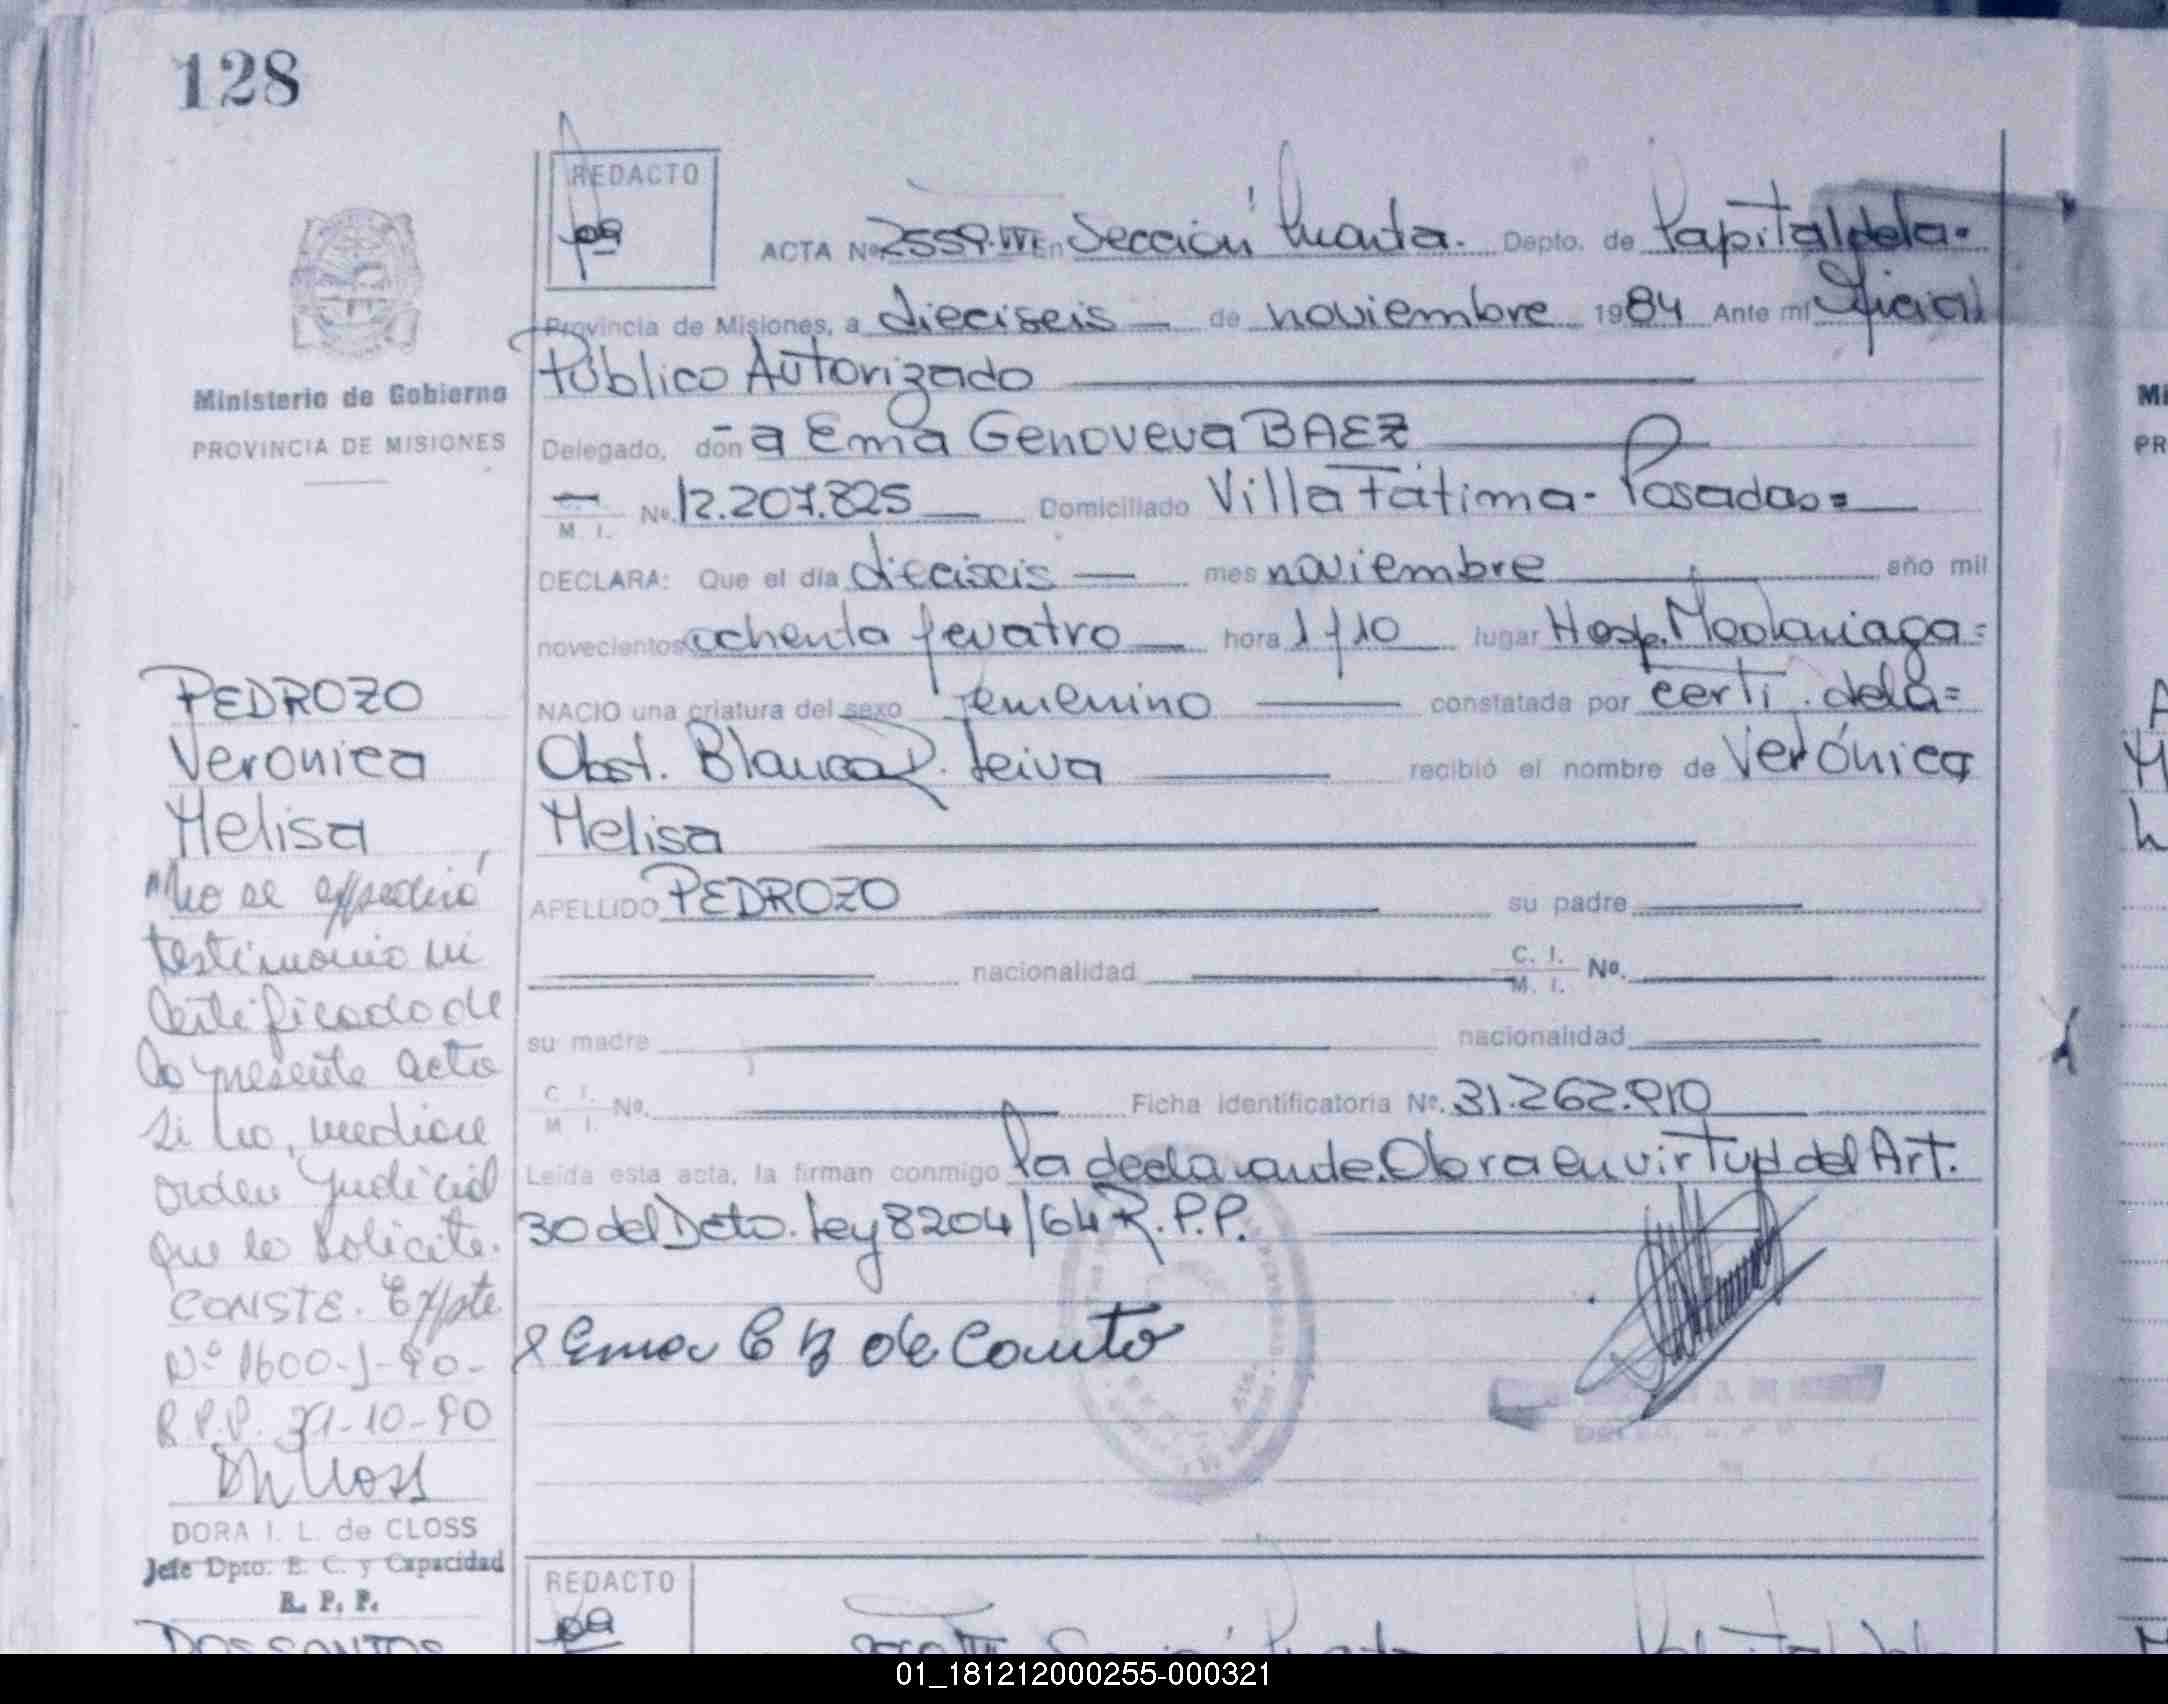 128
REDACTO
ACTA Nº 2559. En Sección Cuarta. Depto. de Capital de la.
Provincia de Misiones, a dieciseis de noviembre 1984 Ante mí Oficial
Público Autorizado
Ministerio de Gobierno
PROVINCIA DE MISIONES
Delegado, don a Ema Genoveva BAEZ
M. I. Nº. 12.207.825 Domiciliado Villa Fátima - Posadas =
DECLARA: Que el día dieciseis mes noviembre año mil
novecientos ochenta y cuatro hora 1 y 10 lugar Hosp. Madariaga =
NACIO una criatura del sexo femenino constatada por certi. de la =
Obst. Blanca R. Leiva recibió el nombre de Verónica
Melisa
APELLIDO PEDROZO su padre
nacionalidad C. I. M. I. Nº.
su madre nacionalidad
C. I. M. I. Nº. Ficha identificatoria Nº. 31.262.910
Leída esta acta, la firman conmigo la declarante. Obra en virtud del Art.
30 del Dcto. Ley 8204/64 R.P.P.
Ema G B de Couto
PEDROZO
Veronica
Melisa
"No se expedirá
testimonio ni
Certificado de
la presente acta
si no, mediare
orden judicial
que lo solicite.
CONSTE. Expte
Nº 1600-J-90-
R.P.P. 31-10-90
DORA I. L. de CLOSS
Jefe Dpto. E. C. y Capacidad
R. P. P.
DOS SANTOS
REDACTO
01_181212000255-000321